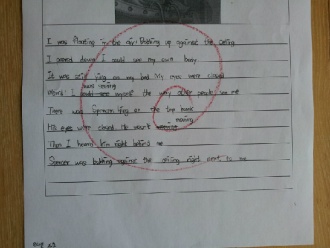 I was floating in the air! Bobbing up against the ceiling
I looked down I could see my own body
It was still lying on my bed My eyes were closed
Weird I could see myself the way other people see me
There was Spencer lying on the top bunk
moving
His eyes were closed. He wasn't
Then I heard him right behind me
Spencer was bobbing against the ceiling right next to me